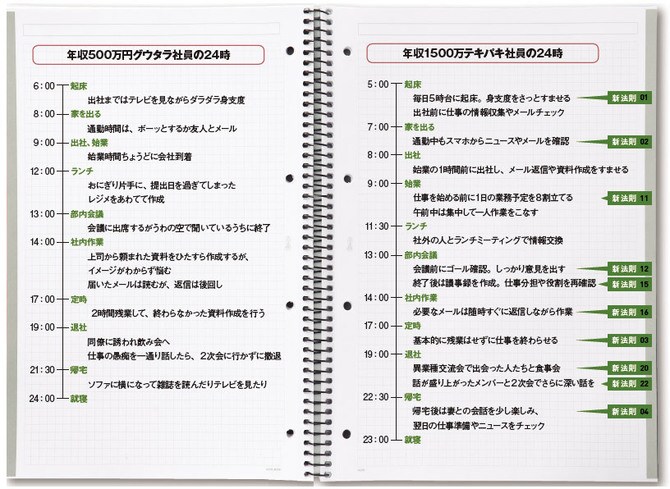 年収500万円グウタラ社員の24時
6:00 起床
出社まではテレビを見ながらダラダラ身支度
8:00 家を出る
通勤時間は、ボーッとするか友人とメール
9:00 出社、始業
始業時間ちょうどに会社到着
12:00 ランチ
おにぎり片手に、提出日を過ぎてしまった
レジメをあわてて作成
13:00 部内会議
会議に出席するがうわの空で聞いているうちに終了
14:00 社内作業
上司から頼まれた資料をひたすら作成するが、
イメージがわからず悩む
届いたメールは読むが、返信は後回し
17:00 定時
2時間残業して、終わらなかった資料作成を行う
19:00 退社
同僚に誘われ飲み会へ
仕事の愚痴を一通り話したら、2次会に行かずに撤退
21:30 帰宅
ソファに横になって雑誌を読んだりテレビを見たり
24:00 就寝
年収1500万テキパキ社員の24時
5:00 起床
毎日5時台に起床。身支度をさっとすませる 新法則 01
出社前に仕事の情報収集やメールチェック
7:00 家を出る
通勤中もスマホからニュースやメールを確認 新法則 02
8:00 出社
始業の1時間前に出社し、メール返信や資料作成をすませる
9:00 始業
仕事を始める前に1日の業務予定を8割立てる 新法則 11
午前中は集中して一人作業をこなす
11:30 ランチ
社外の人とランチミーティングで情報交換
13:00 部内会議
会議前にゴール確認。しっかり意見を出す 新法則 12
終了後は議事録を作成。仕事分担や役割を再確認 新法則 15
14:00 社内作業
必要なメールは随時すぐに返信しながら作業 新法則 16
17:00 定時
基本的に残業はせずに仕事を終わらせる 新法則 03
19:00 退社
異業種交流会で出会った人たちと食事会 新法則 20
話が盛り上がったメンバーと2次会でさらに深い話を 新法則 22
22:30 帰宅
帰宅後は妻との会話を少し楽しみ、 新法則 04
翌日の仕事準備やニュースをチェック
23:00 就寝